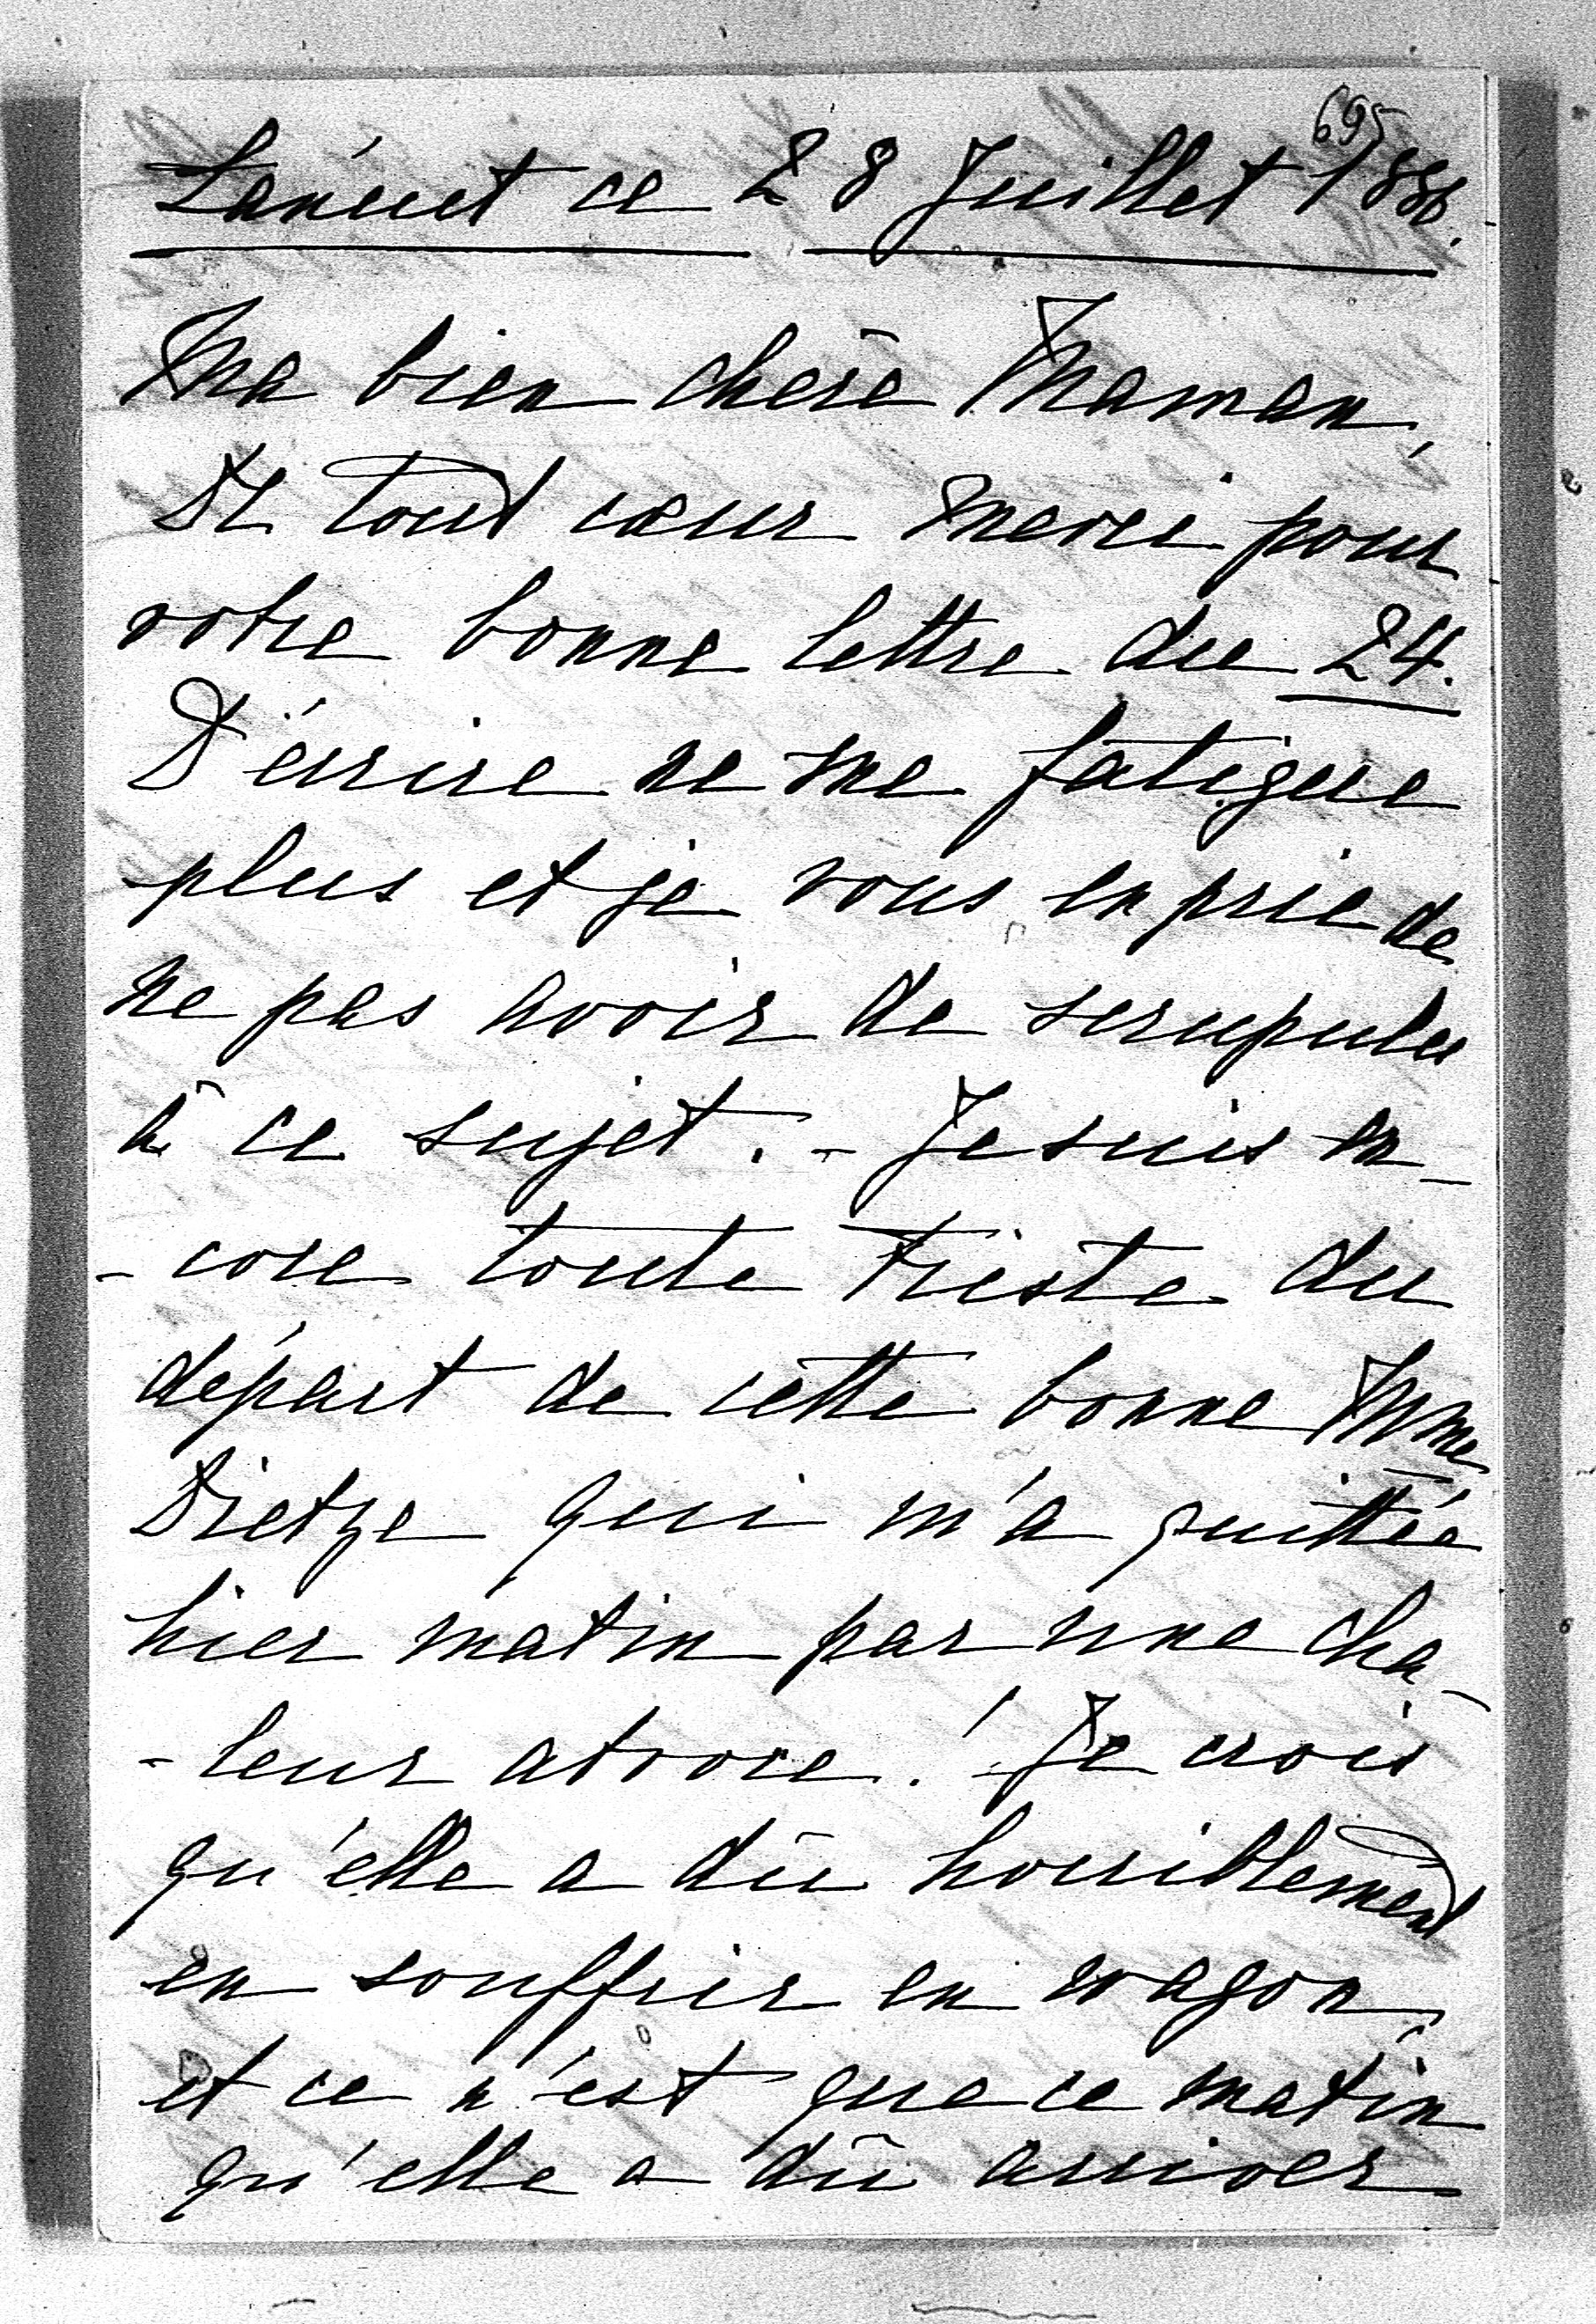 695
Lancut ce 28 Juillet 1886.
Ma bien chère Maman,
De tout cœur merci pour
votre bonne lettre du 24.
D'écrire ne me fatigue
plus et je vous en prie de
ne pas avoir de scrupules
à ce sujet. - Je suis en-
-core toute triste du
départ de cette bonne Mme
Dietze qui m'a quittée
hier matin par une cha-
-leur atroce! Je crois
qu'elle a dû horriblement
en souffrir en wagon,
et ce n'est que ce matin
qu'elle a dû arriver